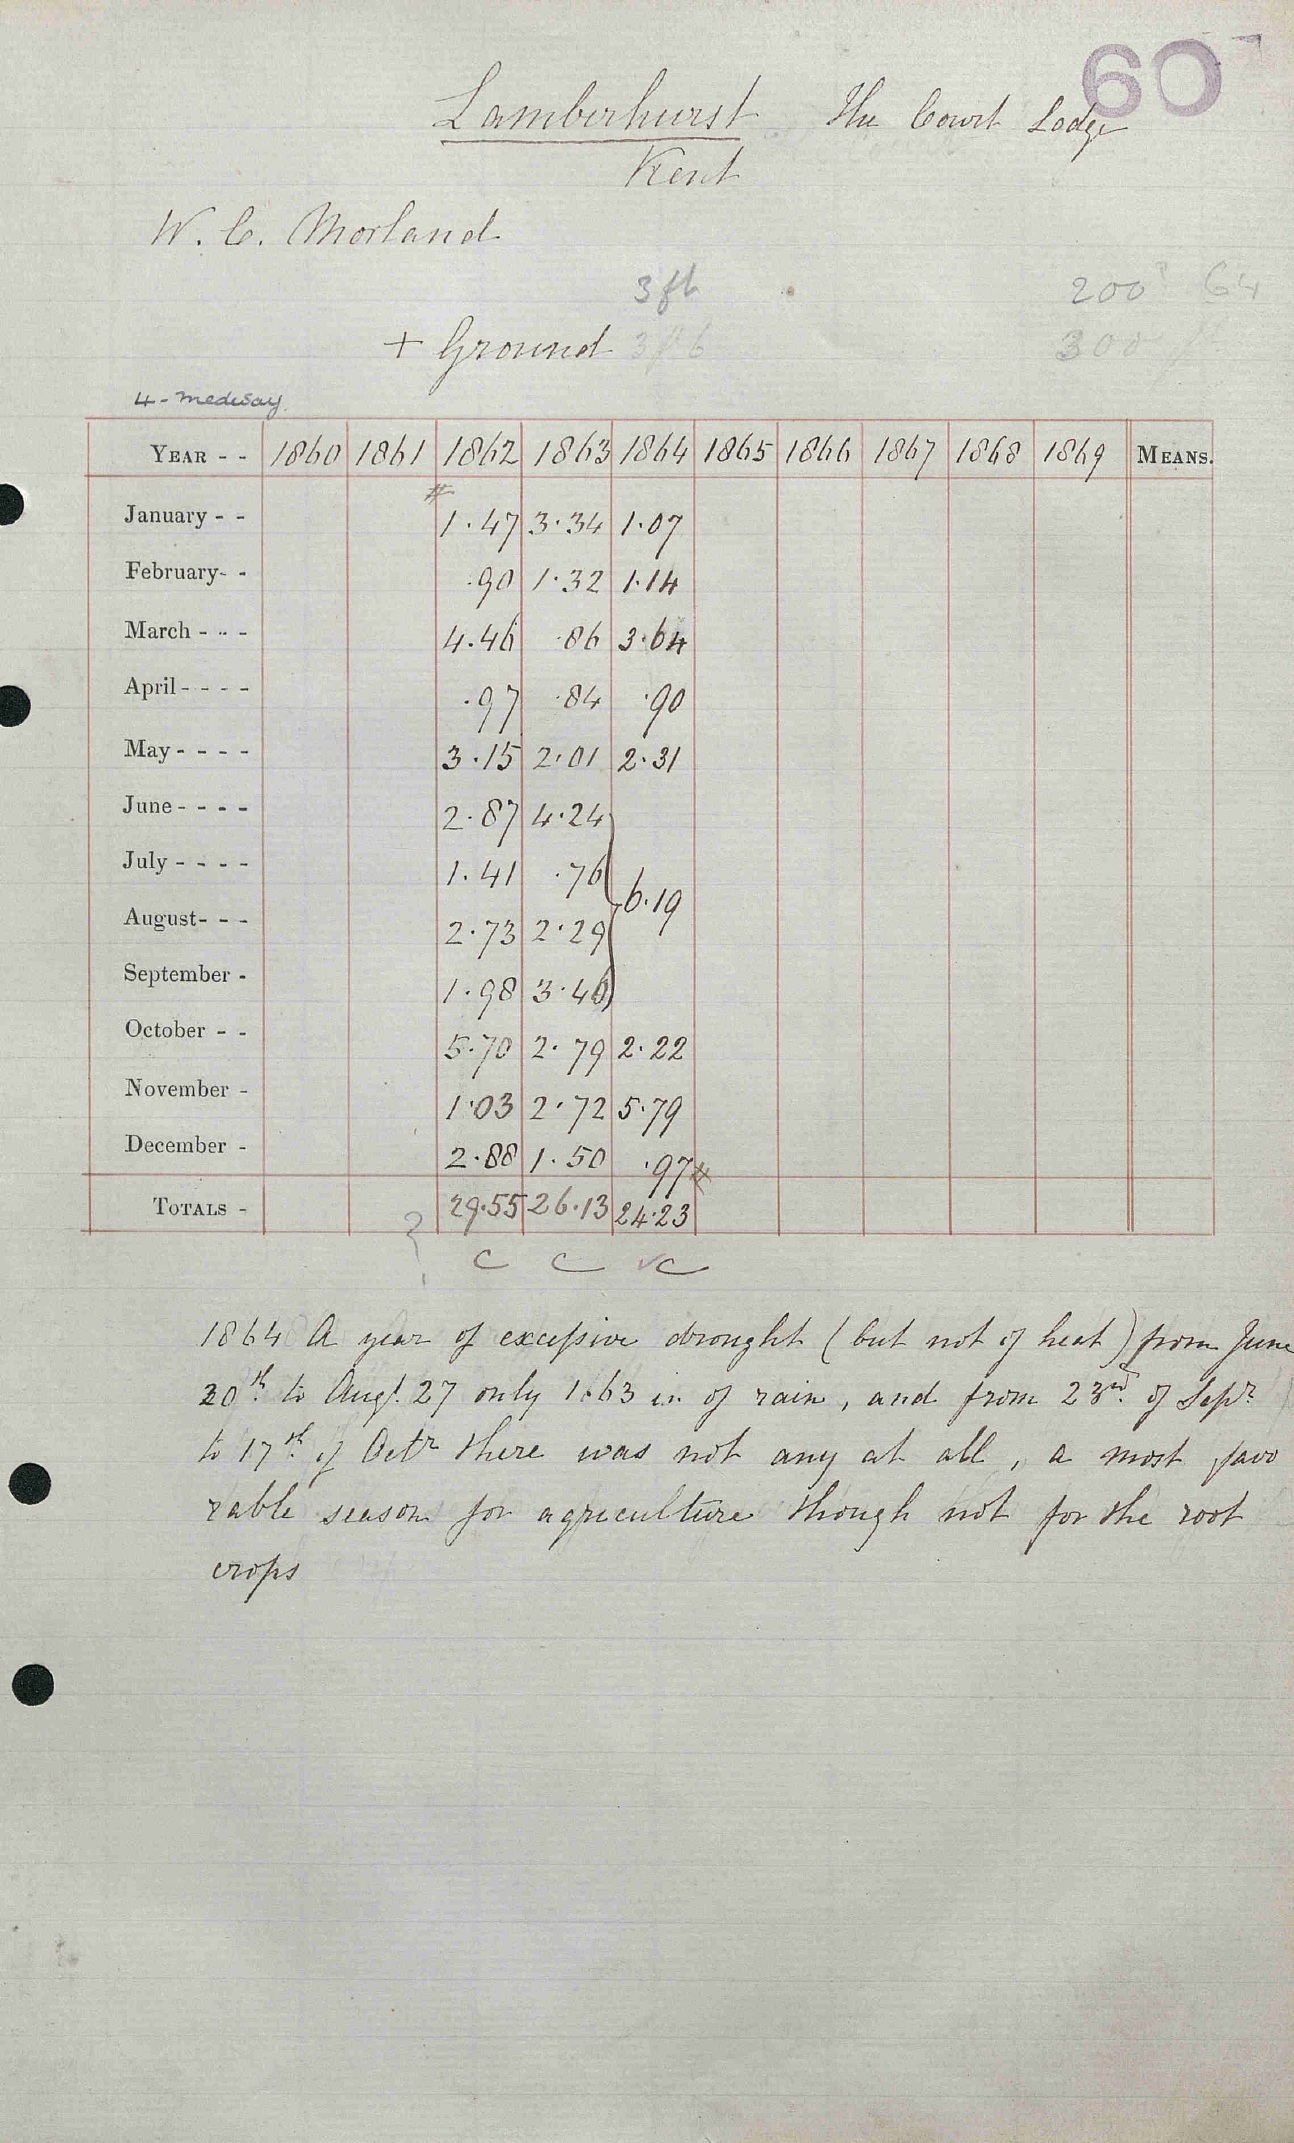 60
Lamberhurst The Court Lodge
Kent
W. C. Morland
3 ft 200? G4
+ Ground 3 ft 6 300
4 - Medway
YEAR - - 1860 1861 1862 1863 1864 1865 1866 1867 1868 1869 MEANS.
January - - 1.47 3.34 1.07
February- - .90 1.32 1.14
March - - - 4.46 .86 3.64
April - - - - .97 .84 .90
May - - - - 3.15 2.01 2.31
June - - - - 2.87 4.24
July - - - - 1.41 .76
6.19
August- - - 2.73 2.29
September - 1.98 3.46
October - - 5.70 2.79 2.22
November - 1.03 2.72 5.79
December - 2.88 1.50 .97
TOTALS - 29.55 26.13 24.23
? C C C
1864 A year of excessive drought (but not of heat) from June
20th to Augt. 27 only 1.63 in of rain, and from 23rd. of Sepr
to 17th of Octr there was not any at all, a most favo
rable season for agriculture though not for the root
crops